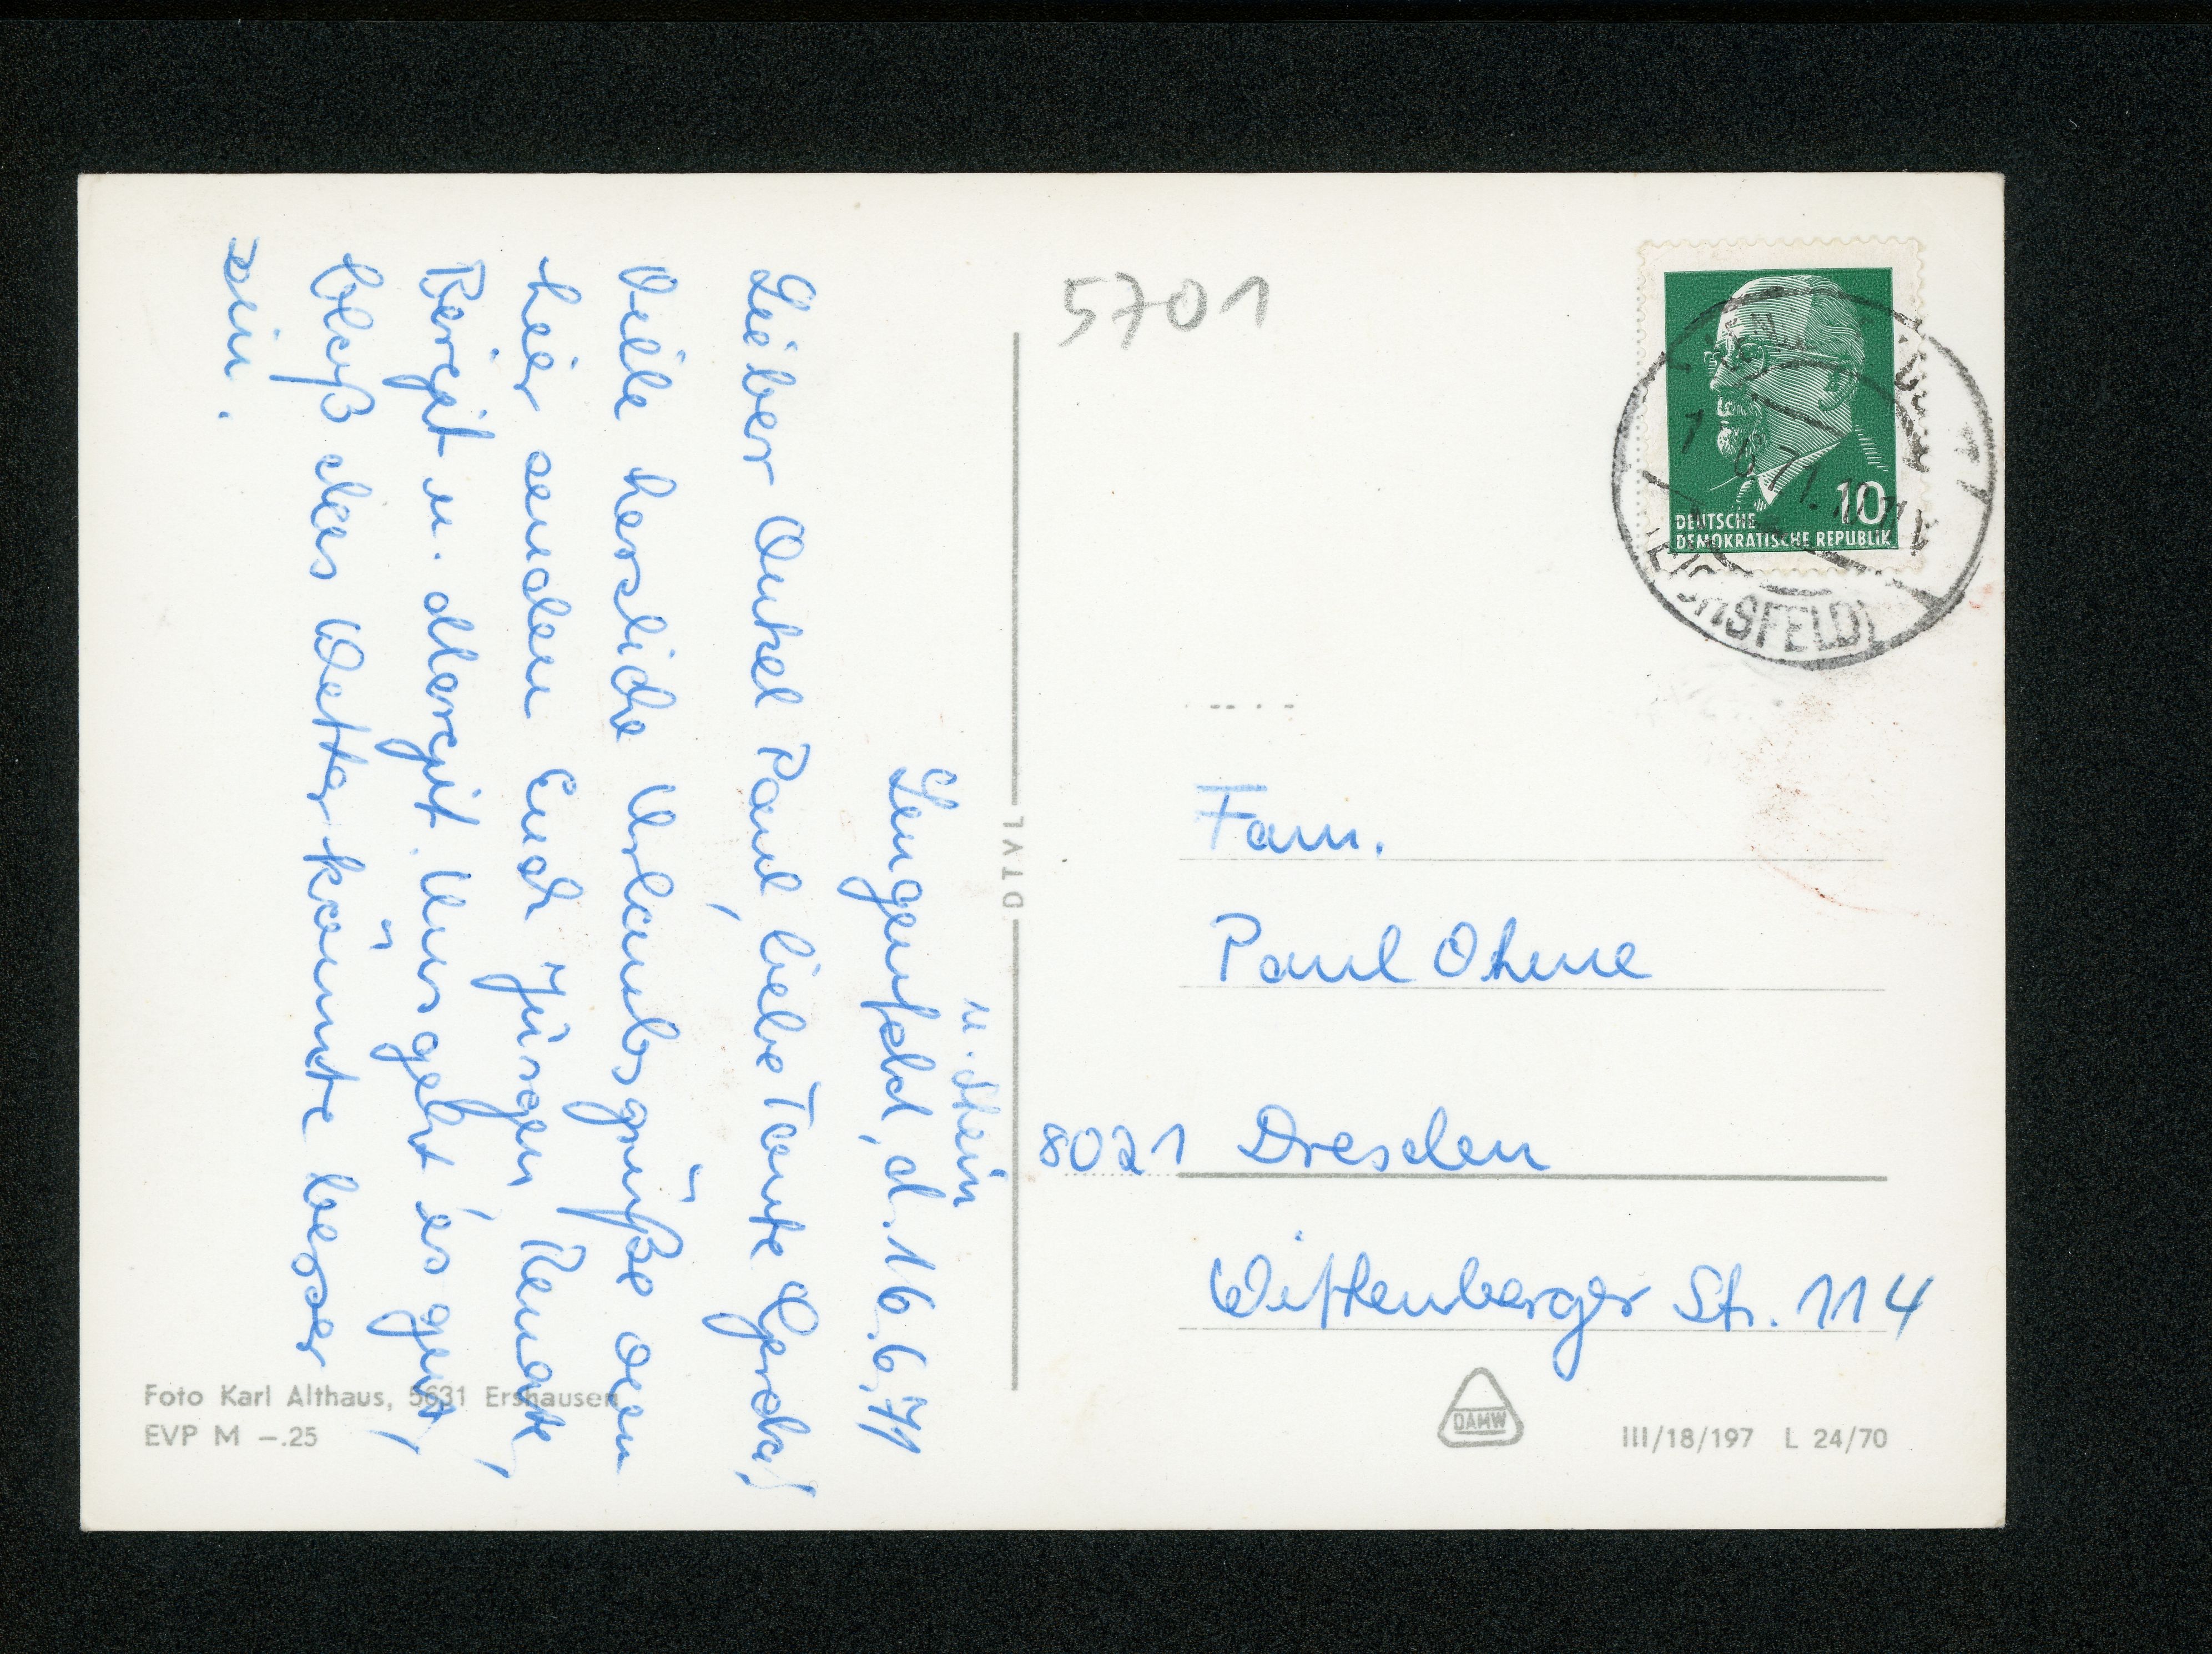 u. Stein
Lengenfeld, d. 16.6.71
Lieber Onkel Paul, liebe Tante Gerda!
Viele herzliche Urlaubsgrüße von
hier senden Euch Jürgen, Renate,
Birgit u. Margit. Uns geht es gut,
bloß das Wetter könnte besser
sein.
Foto Karl Althaus, 5631 Ershausen
EVP M —.25
DTVL
5701
DEUTSCHE
DEMOKRATISCHE REPUBLIK
10
6.71.
EICHSFELD)
Fam.
Paul Ohme
8021 Dresden
Wittenberger Str. 114
DAMW
III/18/197 L 24/70